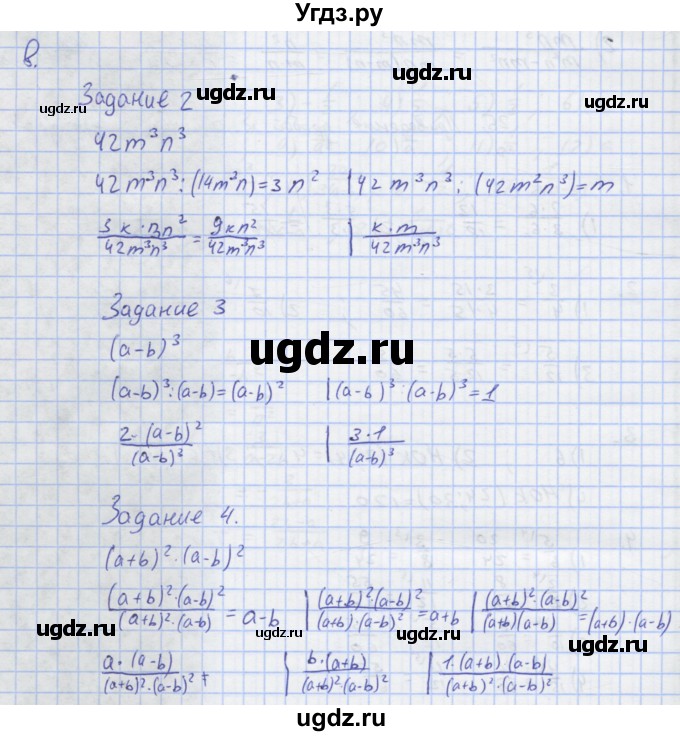 Угдз.ру
В.
ugdz.ru ugdz.ru ugdz.ru
Задание 2
42m³n³
42m³n³:(14m³n)=3n² | 42m³n³:(42m²n³)=m
ugdz.ru ugdz.ru
3k·3n²/42m³n³ = 9kn²/42m³n³ | k·m/42m³n³
Задание 3
ugdz.ru
(a-b)³
(a-b)³:(a-b)=(a-b)² | (a-b)³·(a-b)³=1
2·(a-b)²/(a-b)³ | 3·1/(a-b)³
ugdz.ru ugdz.ru
Задание 4.
(a+b)²·(a-b)²
(a+b)²·(a-b)²/(a+b)²·(a-b) = a-b | (a+b)²(a-b)²/(a+b)·(a-b)² = a+b | (a+b)²·(a-b)²/(a+b)(a-b) = (a+b)·(a-b)
ugdz.ru ugdz.ru
a·(a-b)/(a+b)²·(a-b)² + | b·(a+b)/(a+b)²·(a-b)² | 1·(a+b)(a-b)/(a+b)²·(a-b)²
ugdz.ru